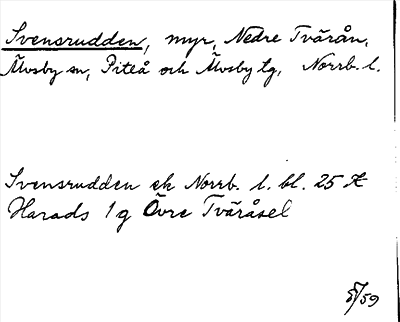 Svensrudden, myr, Nedre Tvärån,
Älvsby sn, Piteå och Älvsby tg, Norrb. l.
Svensrudden ek Norrb. l. bl. 25 K
Harads 1 g Övre Tväråsel
5/59